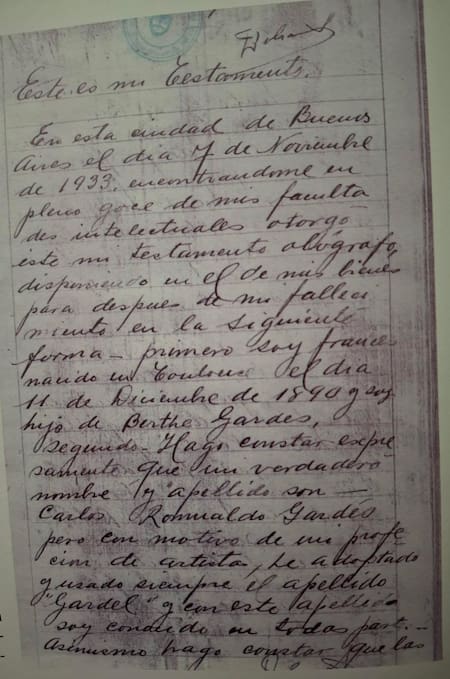 Este es mi Testamento.
En esta ciudad de Buenos
Aires el dia 7 de Noviembre
de 1933. encontrandome en
pleno goce de mis faculta
des intelectuales otorgo
este mi testamento ológrafo,
disponiendo en el de mis bienes
para despues de mi falleci
miento en la siguiente
forma - primero soy frances
nacido en Toulouse el dia
11 de Diciembre de 1890 y soy
hijo de Berthe Gardes,
segundo - Hago constar expre
samente que mi verdadero
nombre y apellido son —
Carlos Romualdo Gardes
pero con motivo de mi profe
cion de artista, he adoptado
y usado siempre el apellido
"Gardel" y con este apellido
soy conocido en todas part. -
Asimismo hago constar que las